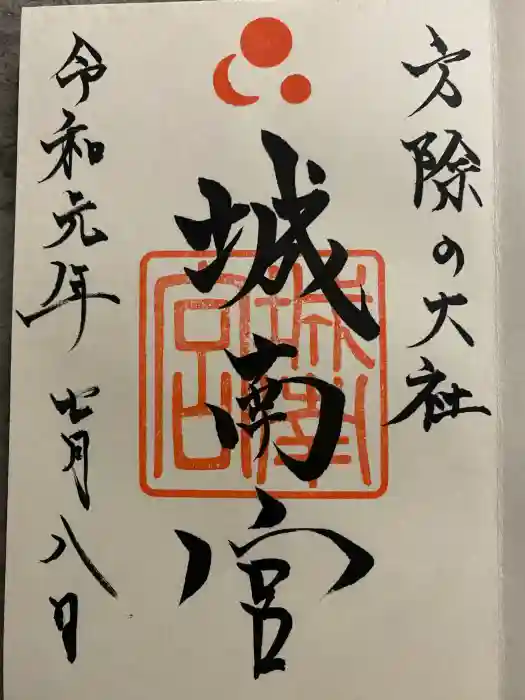 方除の大社
城南宮
令和元年 七月八日